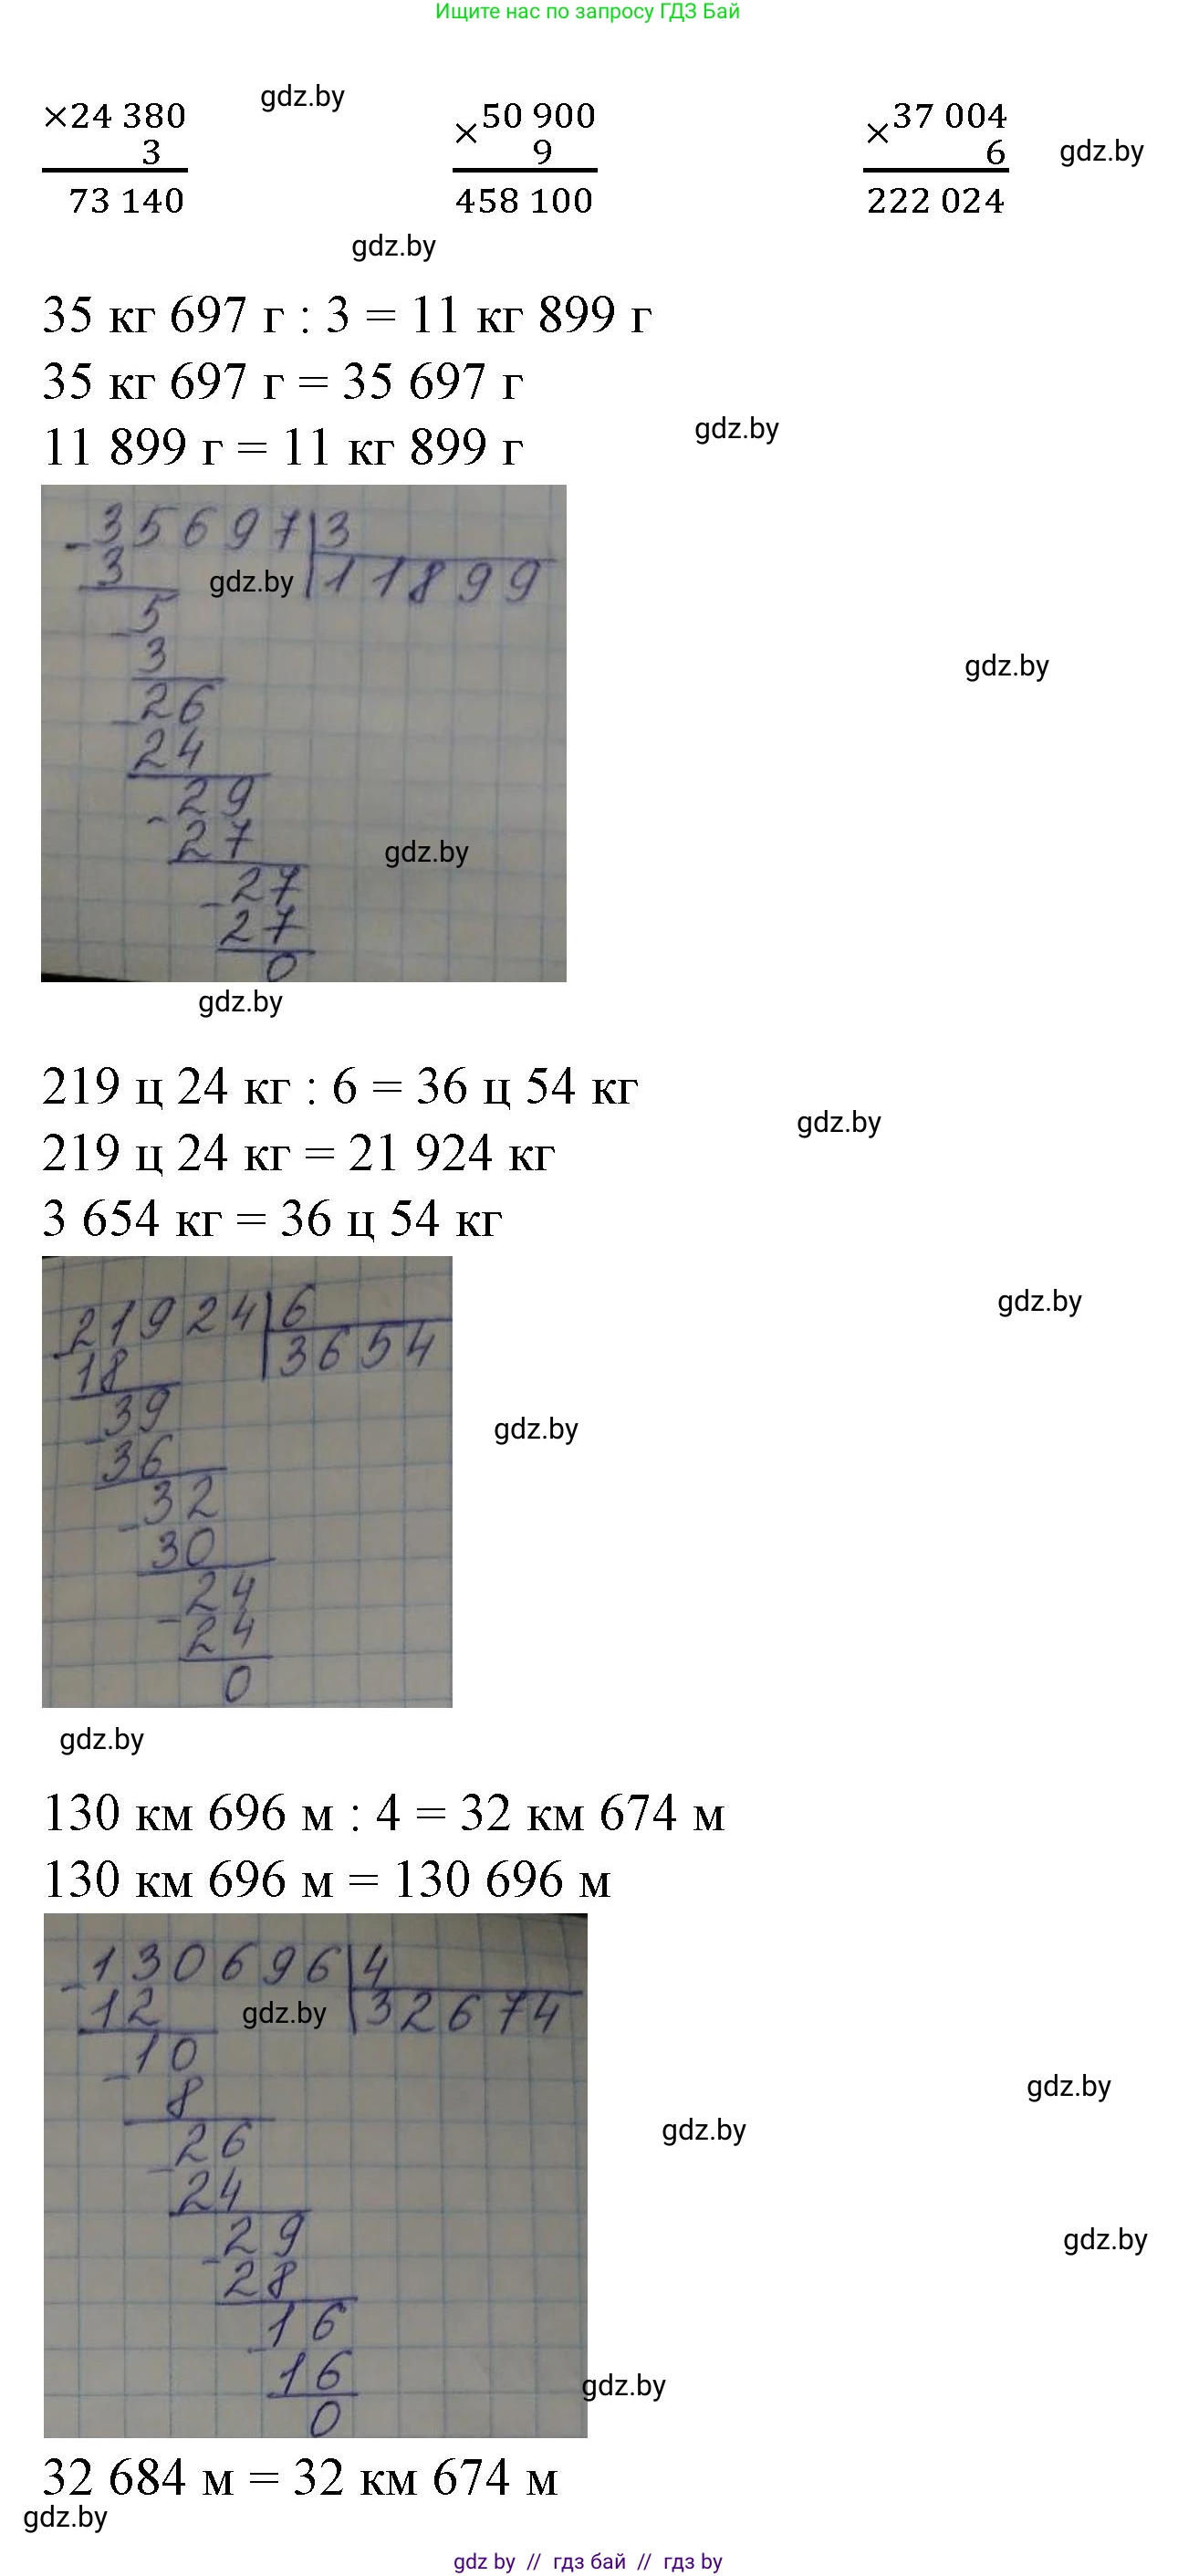 Ищите нас по запросу ГДЗ Бай
×24 380 gdz.by ×50 900 ×37 004
3 9 6 gdz.by
73 140 458 100 222 024
gdz.by
35 кг 697 г : 3 = 11 кг 899 г
35 кг 697 г = 35 697 г
gdz.by
11 899 г = 11 кг 899 г
-35697|3
3 gdz.by 11899
-5
3
gdz.by
-26
24
-29
27 gdz.by
-27
27
0
gdz.by
219 ц 24 кг : 6 = 36 ц 54 кг
gdz.by
219 ц 24 кг = 21 924 кг
3 654 кг = 36 ц 54 кг
gdz.by
-21924|6
18 3654
-39
gdz.by
36
-32
30
-24
24
0
gdz.by
130 км 696 м : 4 = 32 км 674 м
130 км 696 м = 130 696 м
-130696|4
12 gdz.by 32674
-10
8 gdz.by
-26 gdz.by
24
-29 gdz.by
28
-16
16 gdz.by
0
32 684 м = 32 км 674 м
gdz.by
gdz by // гдз бай // гдз by